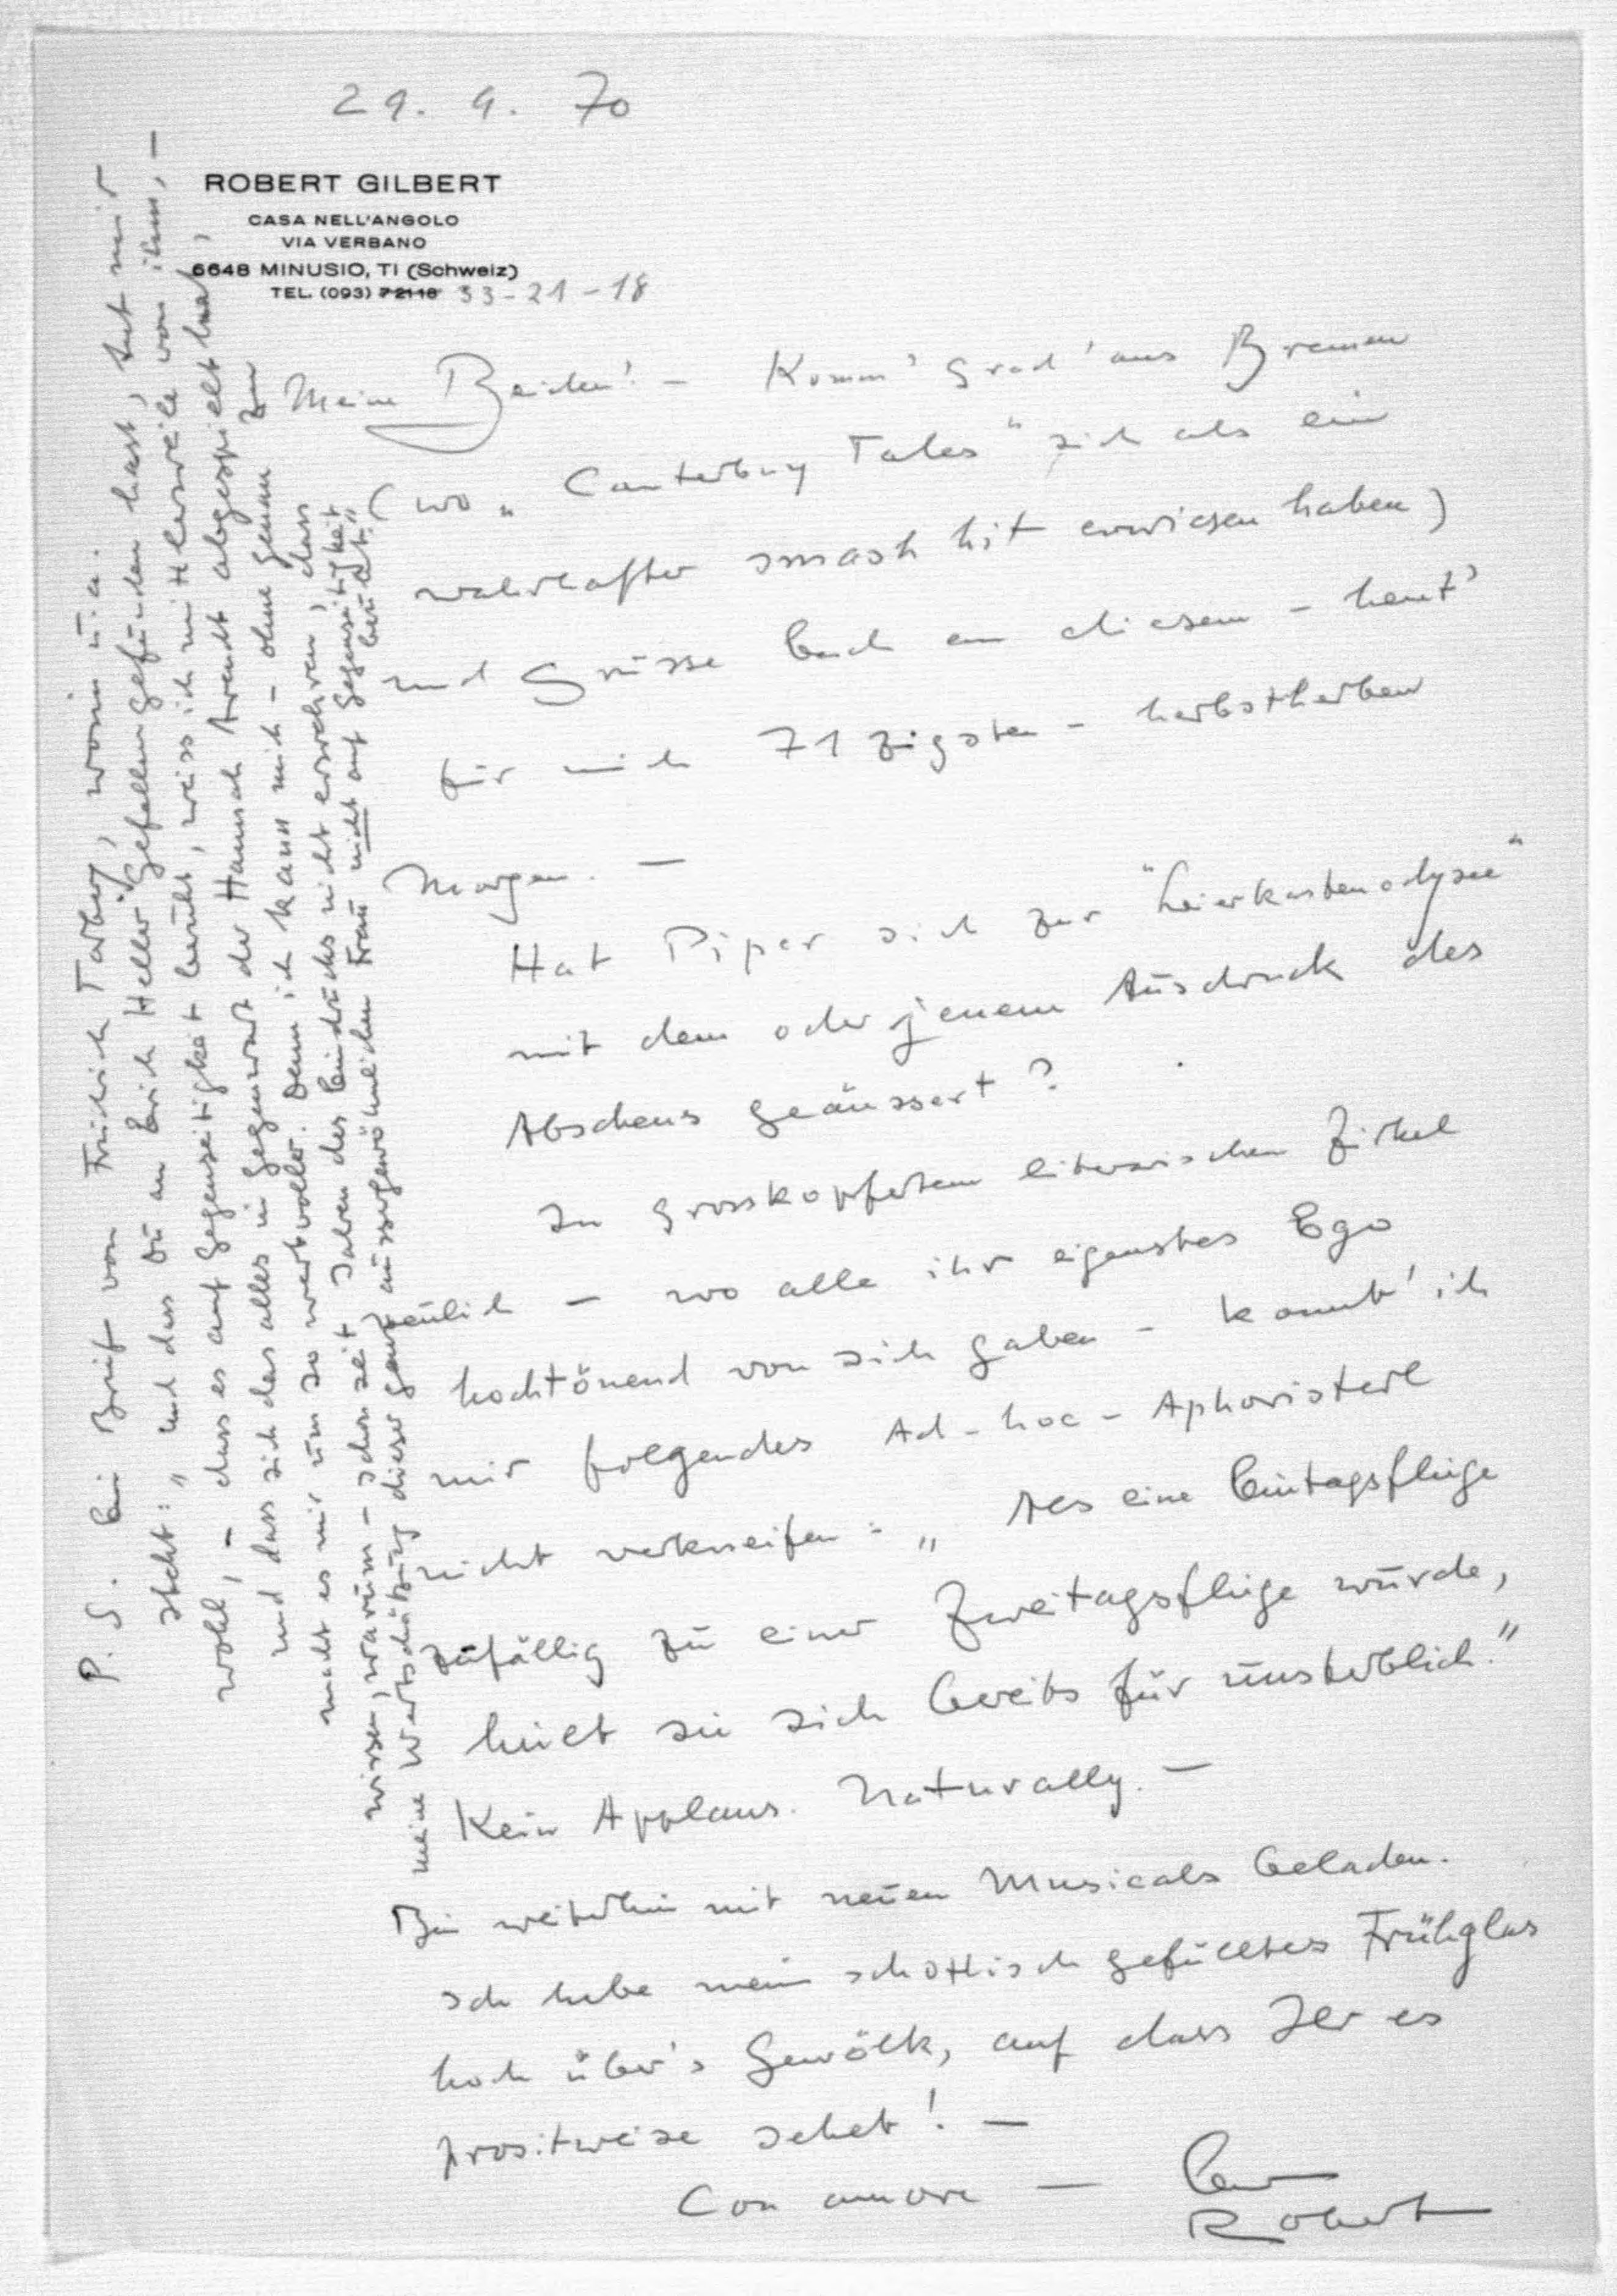 29. 9. 70
ROBERT GILBERT
CASA NELL'ANGOLO
VIA VERBANO
6648 MINUSIO, TI (Schweiz)
TEL. (093) 72118 33-21-18
Meine Beiden! – Komm' grad' aus Bremen
(wo „Canterbury Tales" sich als ein
wahrhafter smash hit erwiesen haben)
und Grüsse Euch an diesem – heut'
für mich 71zigsten – herbstherben
Morgen. –
Hat Piper sich zur "Leierkastenodysee"
mit dem oder jenem Ausdruck des
Abscheus geäussert?
In grosskopfertem literarischen Zirkel
neulich – wo alle ihr eigenstes Ego
hochtönend von sich gaben – konnt' ich
mir folgendes Ad-hoc-Aphoristerl
nicht verkneifen: „Als eine Eintagsfliege
zufällig zu einer Zweitagsfliege würde,
hielt sie sich bereits für unsterblich."
Kein Applaus. Naturally. –
Bin weiterhin mit neuen Musicals beladen.
Ich hebe mein schottisch gefülltes Frühglas
hoch über's Gewölk, auf dass Ihr es
prositweise sehet! –
Con amore – Euer
Robert
P.S. Ein Brief von Friedrich Torberg, worin u.a.
steht: „Und dass Du an Erich Heller Gefallen gefunden hast, tut mir
wohl, – dass es auf Gegenseitigkeit beruht, weiss ich mittlerweile von ihm, –
und dass sich das alles in Gegenwart der Hannah Arendt abgespielt hat,
macht es mir um so wertvoller. Denn ich kann mich – ohne genau zu
wissen, warum – schon seit Jahren des Eindrucks nicht erwehren, dass
meine Wertschätzung dieser ganz aussergewöhnlichen Frau nicht auf Gegenseitigkeit
beruht."